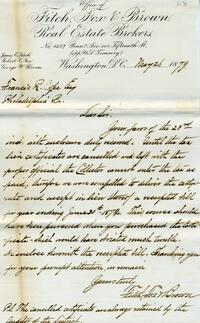 Office of
Fitch, Fox & Brown
Real Estate Brokers
No 1437 Penn. Ave. cor. Fifteenth St.
(opp. U.S. Treasury)
James E. Fitch.
Robert C. Fox.
George W. Brown.
Washington D.C. May 26 1879
Francis R.
Philadelphia Pa.
Dear Sir.
Yours favor of the 23rd
inst. with enclosures duly received. Until the tax
lien certificates are cancelled and left with the
proper official the Collector cannot enter the tax as
paid, therefore we were compelled to deliver the certifi-
cate and accept in lieu thereof a receipted bill
for year ending June 30th 1878. This course should
have been pursued when you purchased the certi-
ficate which would have obviated much trouble.
We enclose herewith the receipted bill. Thanking you
for your prompt attention, we remain
Yours truly
Fitch Fox & Brown
P.S. The cancelled certificates are always retained by the
of the District.